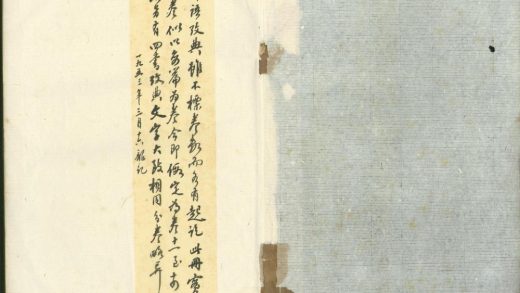 語攷典雖不標卷數而各有起訖此冊實
卷似以每篇為卷今即假定為卷十一至
另有四書攷典文字大致相同分卷略異
一九五三年三月十六 記